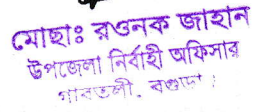 মোছাঃ রওনক জাহান
উপজেলা নির্বাহী অফিসার
গাবতলী, বগুড়া।